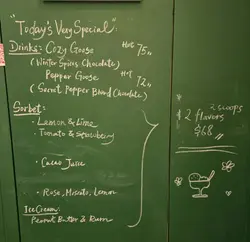 "Today's Very Special":
Drinks: Cozy Goose HOT 75,,
(Winter Spices Chocolate)
Pepper Goose HOT 72,,
(Secret Pepper Blend Chocolate)
Sorbet:
• Lemon & Lime
• Tomato &
• Cacao Juice
• Rose, Lemon
Ice Cream:
Peanut Butter & Rum
2 scoops
2 flavors
$68